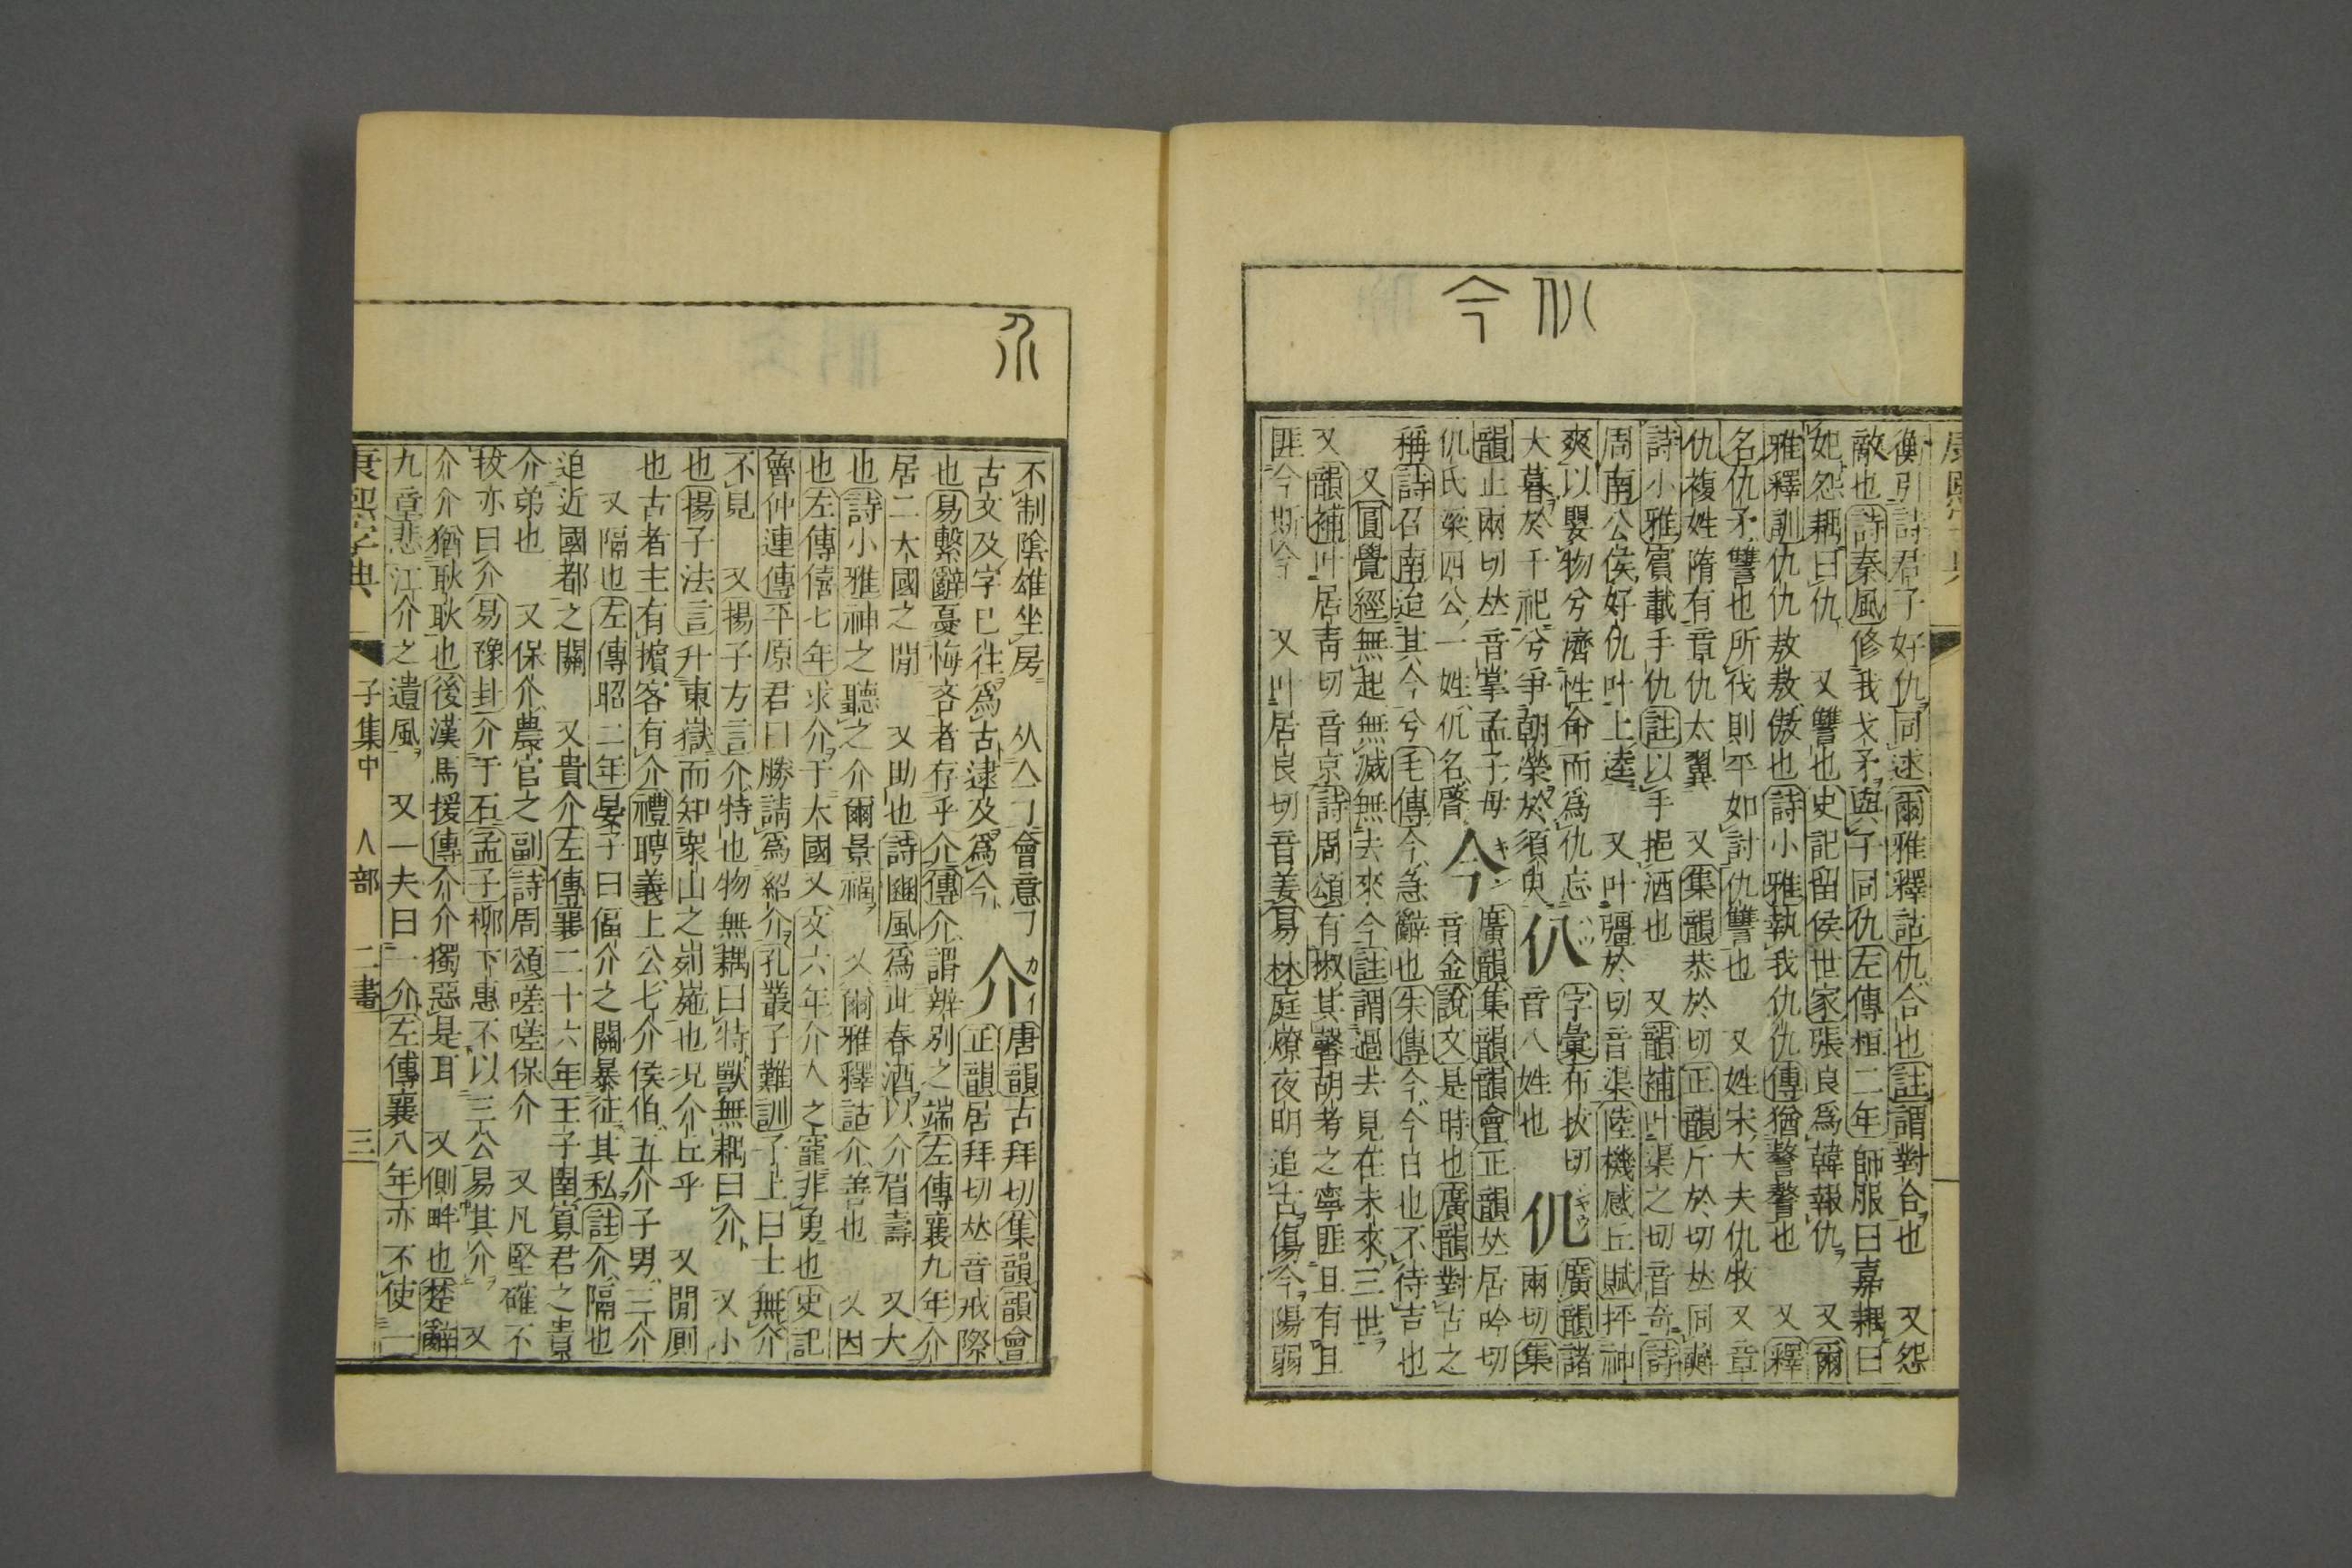 仈 今
衡引詩君子好仇同逑爾雅釋詁仇合也註謂對合也 又怨
敵也詩秦風修我戈矛與子同仇左傳桓二年師服曰嘉耦曰
妃怨耦曰仇 又讐也史記留侯世家張良爲韓報仇 又爾
雅釋訓仇仇敖敖傲也詩小雅執我仇仇傳猶謷謷也 又釋
名仇矛讐也所伐則平如討仇讐也 又姓宋大夫仇牧 又章
仇複姓隋有章仇太翼 又集韻恭於切正韻斤於切𠀤同㪺
詩小雅賓載手仇註以手挹酒也 又韻補叶渠之切音奇詩
周南公侯好仇叶上逵 又叶彊於切音渠陸機感丘賦抨神
爽以嬰物兮濟性命而爲仇忘
大暮於千祀兮爭朝榮於須臾
仈 字彙布拔切
音八姓也
仉 廣韻諸
兩切集
韻正兩切𠀤音掌孟子母
仉氏梁四公一姓仉名䏿
今 廣韻集韻韻會正韻𠀤居吟切
音金說文是時也廣韻對古之
稱詩召南迨其今兮毛傳今急辭也朱傳今今日也不待吉也
又圓覺經無起無滅無去來今註謂過去見在未來三世
又韻補叶居靑切音京詩周頌有椒其馨胡考之寧匪且有且
匪今斯今 又叶居良切音姜易林庭燎夜明追古傷今陽弱
介
不制陰雄坐房 从亼㇇會意㇇
古文及字巳往爲古逮及爲今
介 唐韻古拜切集韻韻會
正韻居拜切𠀤音戒際
也易繫辭憂悔吝者存乎介傳介謂辨別之端左傳襄九年介
居二大國之閒 又助也詩豳風爲此春酒以介眉壽 又大
也詩小雅神之聽之介爾景福 又爾雅釋詁介善也 又因
也左傳僖七年求介于大國又文六年介人之寵非勇也史記
魯仲連傳平原君曰勝請爲紹介孔叢子難訓子上曰士無介
不見 又揚子方言介特也物無耦曰特獸無耦曰介 又小
也揚子法言升東嶽而知衆山之峛崺也况介丘乎 又閒厠
也古者主有擯客有介禮聘義上公七介侯伯五介子男三介
又隔也左傳昭二年晏子曰偪介之關暴征其私註介隔也
迫近國都之關 又貴介左傳襄二十六年王子圍寡君之貴
介弟也 又保介農官之副詩周頌嗟嗟保介 又凡堅確不
拔亦曰介易豫卦介于石孟子柳下惠不以三公易其介 又
介介猶耿耿也後漢馬援傳介介獨惡是耳 又側畔也楚辭
九章悲江介之遺風 又一夫曰一介左傳襄八年亦不使一
康熙字典 子集中 人部 二畫 三